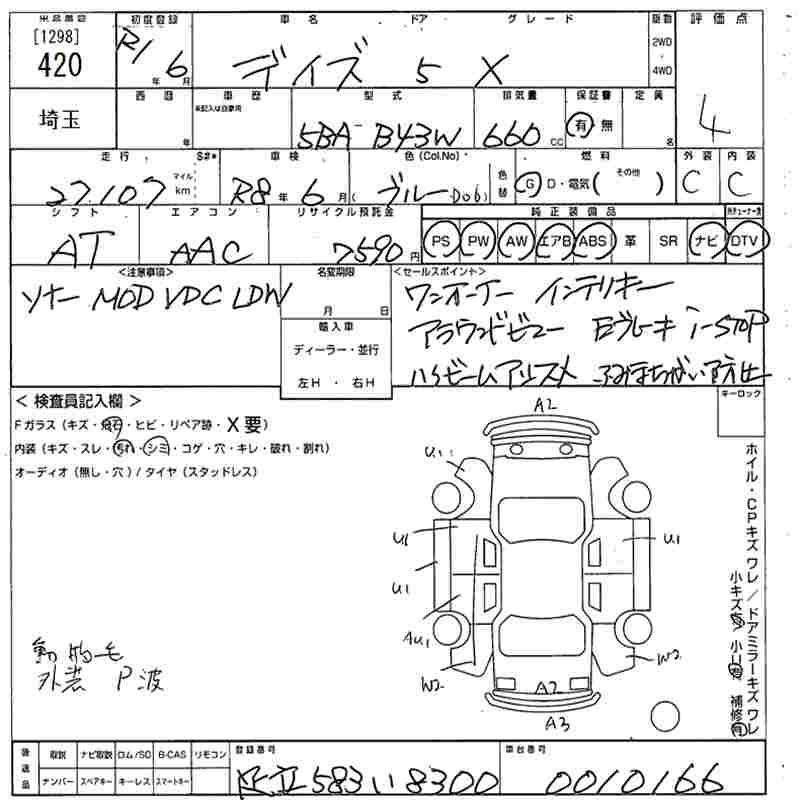 [1298]
420
埼玉
初度登録 R1 年 6 月
車名 ドア グレード
デイズ 5 X
駆動 2WD 4WD
評価点 4
西暦 年
車歴 未記入は自家用
型式 5BA-B43W
排気量 660 cc
保証書 有 無
定員 名
走行 27,107 マイル km S#*
車検 R8 年 6 月
色(Col.No) ブルー
色替
燃料 G D・電気( その他 )
外装 C
内装 C
シフト AT
エアコン AAC
リサイクル預託金 7590 円
純正装備品
PS PW AW エアB ABS 革 SR ナビ DTV
<注意事項>
ソナー MOD VDC LDW
名変期限
月 日
輸入車
ディーラー・並行
左H ・ 右H
<セールスポイント>
ワンオーナー インテリキー
アラウンドビュー Eブレーキ i-STOP
ハイビームアシスト ふみまちがい防止
キーロック
< 検査員記入欄 >
Fガラス (キズ・飛石・ヒビ・リペア跡・X要)
内装 (キズ・スレ・汚れ・シミ・コゲ・穴・キレ・破れ・割れ)
オーディオ (無し・穴) / タイヤ (スタッドレス)
A2
U1
U1
U1
U1
AU1
W2
W2
A2
A3
ホイル・CPキズ ワレ / ドアミラーキズ ワレ
小キズ有 小U有 補修有
動物毛
外装 P波
後送品
取説 ナビ取説 ロム/SD B-CAS リモコン
ナンバー スペアキー キーレス スマートキー
登録番号
足立 583 い 8300
車台番号
0010166